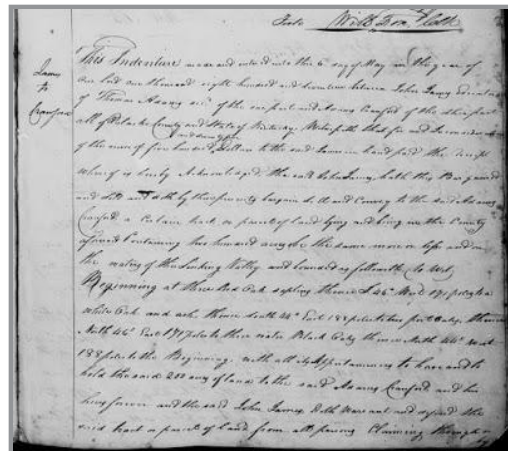 This Indenture made and entered into the 6 day of May in the year of
our Lord one thousand eight hundred and between John James
of Thomas of the one part and Crawford of the other part
all of Pulaski County and State of Kentucky Witnesseth that for and
of the sum of five hundred Dollars to the said James in hand paid the receipt
whereof is hereby Acknowledged the said John James hath this
and doth by these presents bargain sell and Convey to the said
Crawford a Certain tract or parcel of land lying and being in the County
aforesaid Containing two hundred acres be the same more or less and on
the waters of the Sinking Valley and bounded as followeth (to wit)
Beginning at three Red Oak sapling thence S 46 West 171 poles to a
white Oak and ash thence South 44 East 188 poles to two post Oaks, thence
North 46 East 171 poles to three Black Oaks thence North 44 West
188 poles to the Beginning with all its Appurtenances to have and to
hold the said 200 acres of land to the said Crawford and his
heirs forever and the said John James doth warrant and defend the
said tract or parcel of land from all persons Claiming through or
by
James
to
Crawford